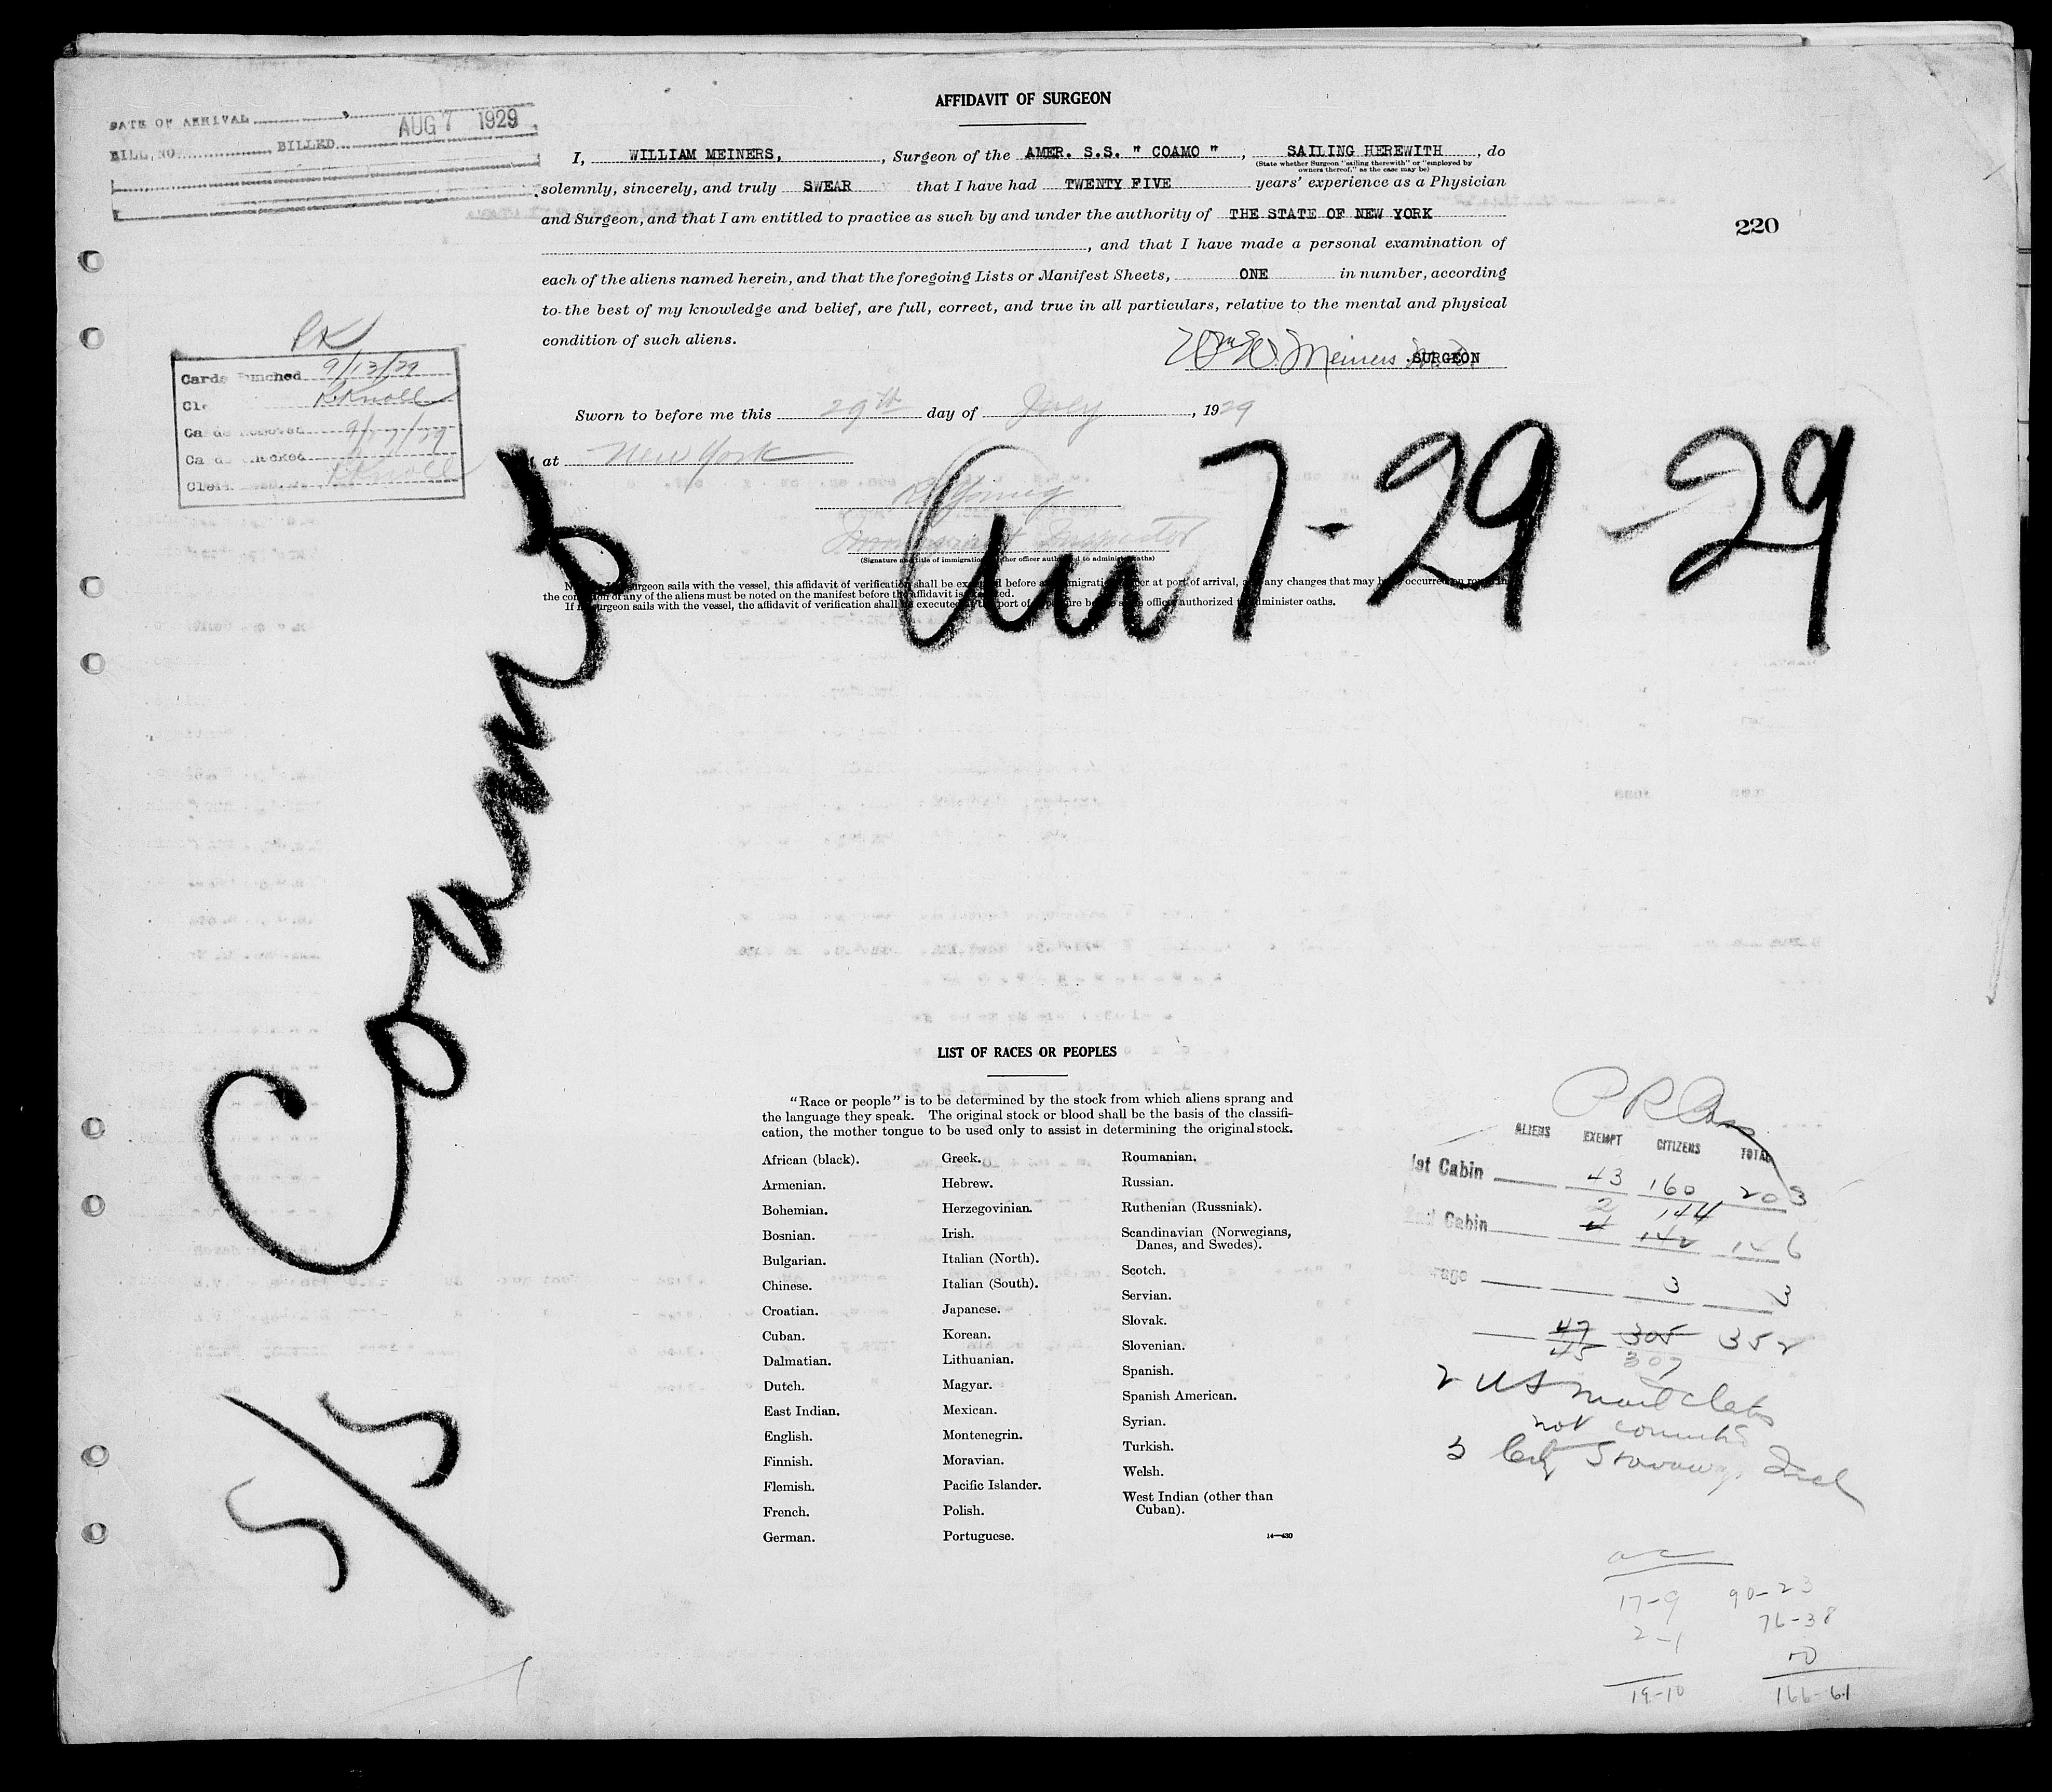 AFFIDAVIT OF SURGEON
DATE OF ARRIVAL AUG 7 1929
BILL NO. BILLED
I, WILLIAM MEINERS, , Surgeon of the AMER. S.S. " COAMO " , SAILING HEREWITH , do
(State whether Surgeon "sailing therewith" or "employed by
owners thereof," as the case may be)
solemnly, sincerely, and truly SWEAR that I have had TWENTY FIVE years' experience as a Physician
and Surgeon, and that I am entitled to practice as such by and under the authority of THE STATE OF NEW YORK
, and that I have made a personal examination of
each of the aliens named herein, and that the foregoing Lists or Manifest Sheets, ONE in number, according
to the best of my knowledge and belief, are full, correct, and true in all particulars, relative to the mental and physical
condition of such aliens.
220
Wm W. Meiners M.D. SURGEON
Sworn to before me this 29th day of July , 1929
at New York
R Young
Immigrant Inspector
(Signature and title of immigration or other officer authorized to administer oaths)
surgeon sails with the vessel, this affidavit of verification shall be before at port of arrival, any changes that may occurred
the condition of any of the aliens must be noted on the manifest before the affidavit is
If surgeon sails with the vessel, the affidavit of verification shall be executed port of officer authorized to administer oaths.
PK
Cards Punched 9/13/29
RKnoll
9/17/29
Clerk RKnoll
7-29-29
Coamo
S/S
LIST OF RACES OR PEOPLES
"Race or people" is to be determined by the stock from which aliens sprang and
the language they speak. The original stock or blood shall be the basis of the classifi-
cation, the mother tongue to be used only to assist in determining the original stock.
African (black).
Armenian.
Bohemian.
Bosnian.
Bulgarian.
Chinese.
Croatian.
Cuban.
Dalmatian.
Dutch.
East Indian.
English.
Finnish.
Flemish.
French.
German.
Greek.
Hebrew.
Herzegovinian.
Irish.
Italian (North).
Italian (South).
Japanese.
Korean.
Lithuanian.
Magyar.
Mexican.
Montenegrin.
Moravian.
Pacific Islander.
Polish.
Portuguese.
Roumanian.
Russian.
Ruthenian (Russniak).
Scandinavian (Norwegians,
Danes, and Swedes).
Scotch.
Servian.
Slovak.
Slovenian.
Spanish.
Spanish American.
Syrian.
Turkish.
Welsh.
West Indian (other than
Cuban).
14—430
ALIENS EXEMPT CITIZENS TOTAL
1st Cabin 43 160 203
2 144
2nd Cabin 4 142 146
3 3
47 305 352
45 307
2 US
not
3
17-9 90-23
2-1 76-38
19-10 166-61